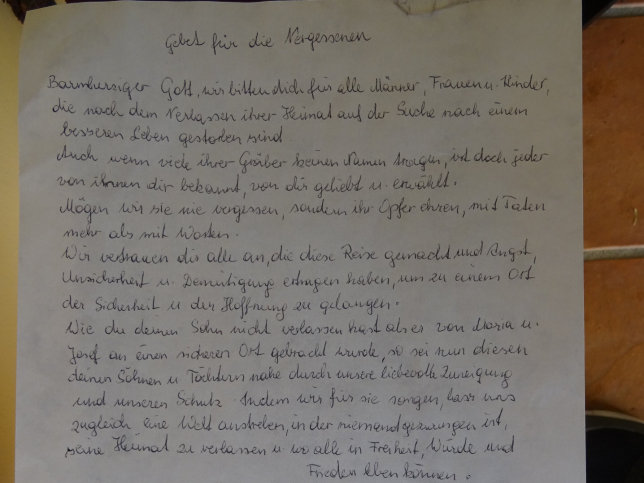 Gebet für die Vergessenen
Barmherziger Gott, wir bitten dich für alle Männer, Frauen u. Kinder,
die nach dem Verlassen ihrer Heimat auf der Suche nach einem
besseren Leben gestorben sind.
Auch wenn viele ihrer Gräber keinen Namen tragen, ist doch jeder
von ihnen dir bekannt, von dir geliebt u. erwählt.
Mögen wir sie nie vergessen, sondern ihr Opfer ehren, mit Taten
mehr als mit Worten.
Wir vertrauen dir alle an, die diese Reise gemacht und Angst,
Unsicherheit u. Demütigung ertragen haben, um zu einem Ort
der Sicherheit u. der Hoffnung zu gelangen.
Wie du deinen Sohn nicht verlassen hast als er von Maria u.
Josef an einen sicheren Ort gebracht wurde, so sei nun diesen
deinen Söhnen u. Töchtern nahe durch unsere liebevolle Zuneigung
und unseren Schutz. Indem wir für sie sorgen, lass uns
zugleich eine Welt anstreben, in der niemand gezwungen ist,
seine Heimat zu verlassen u. wo alle in Freiheit, Würde und
Frieden leben können.